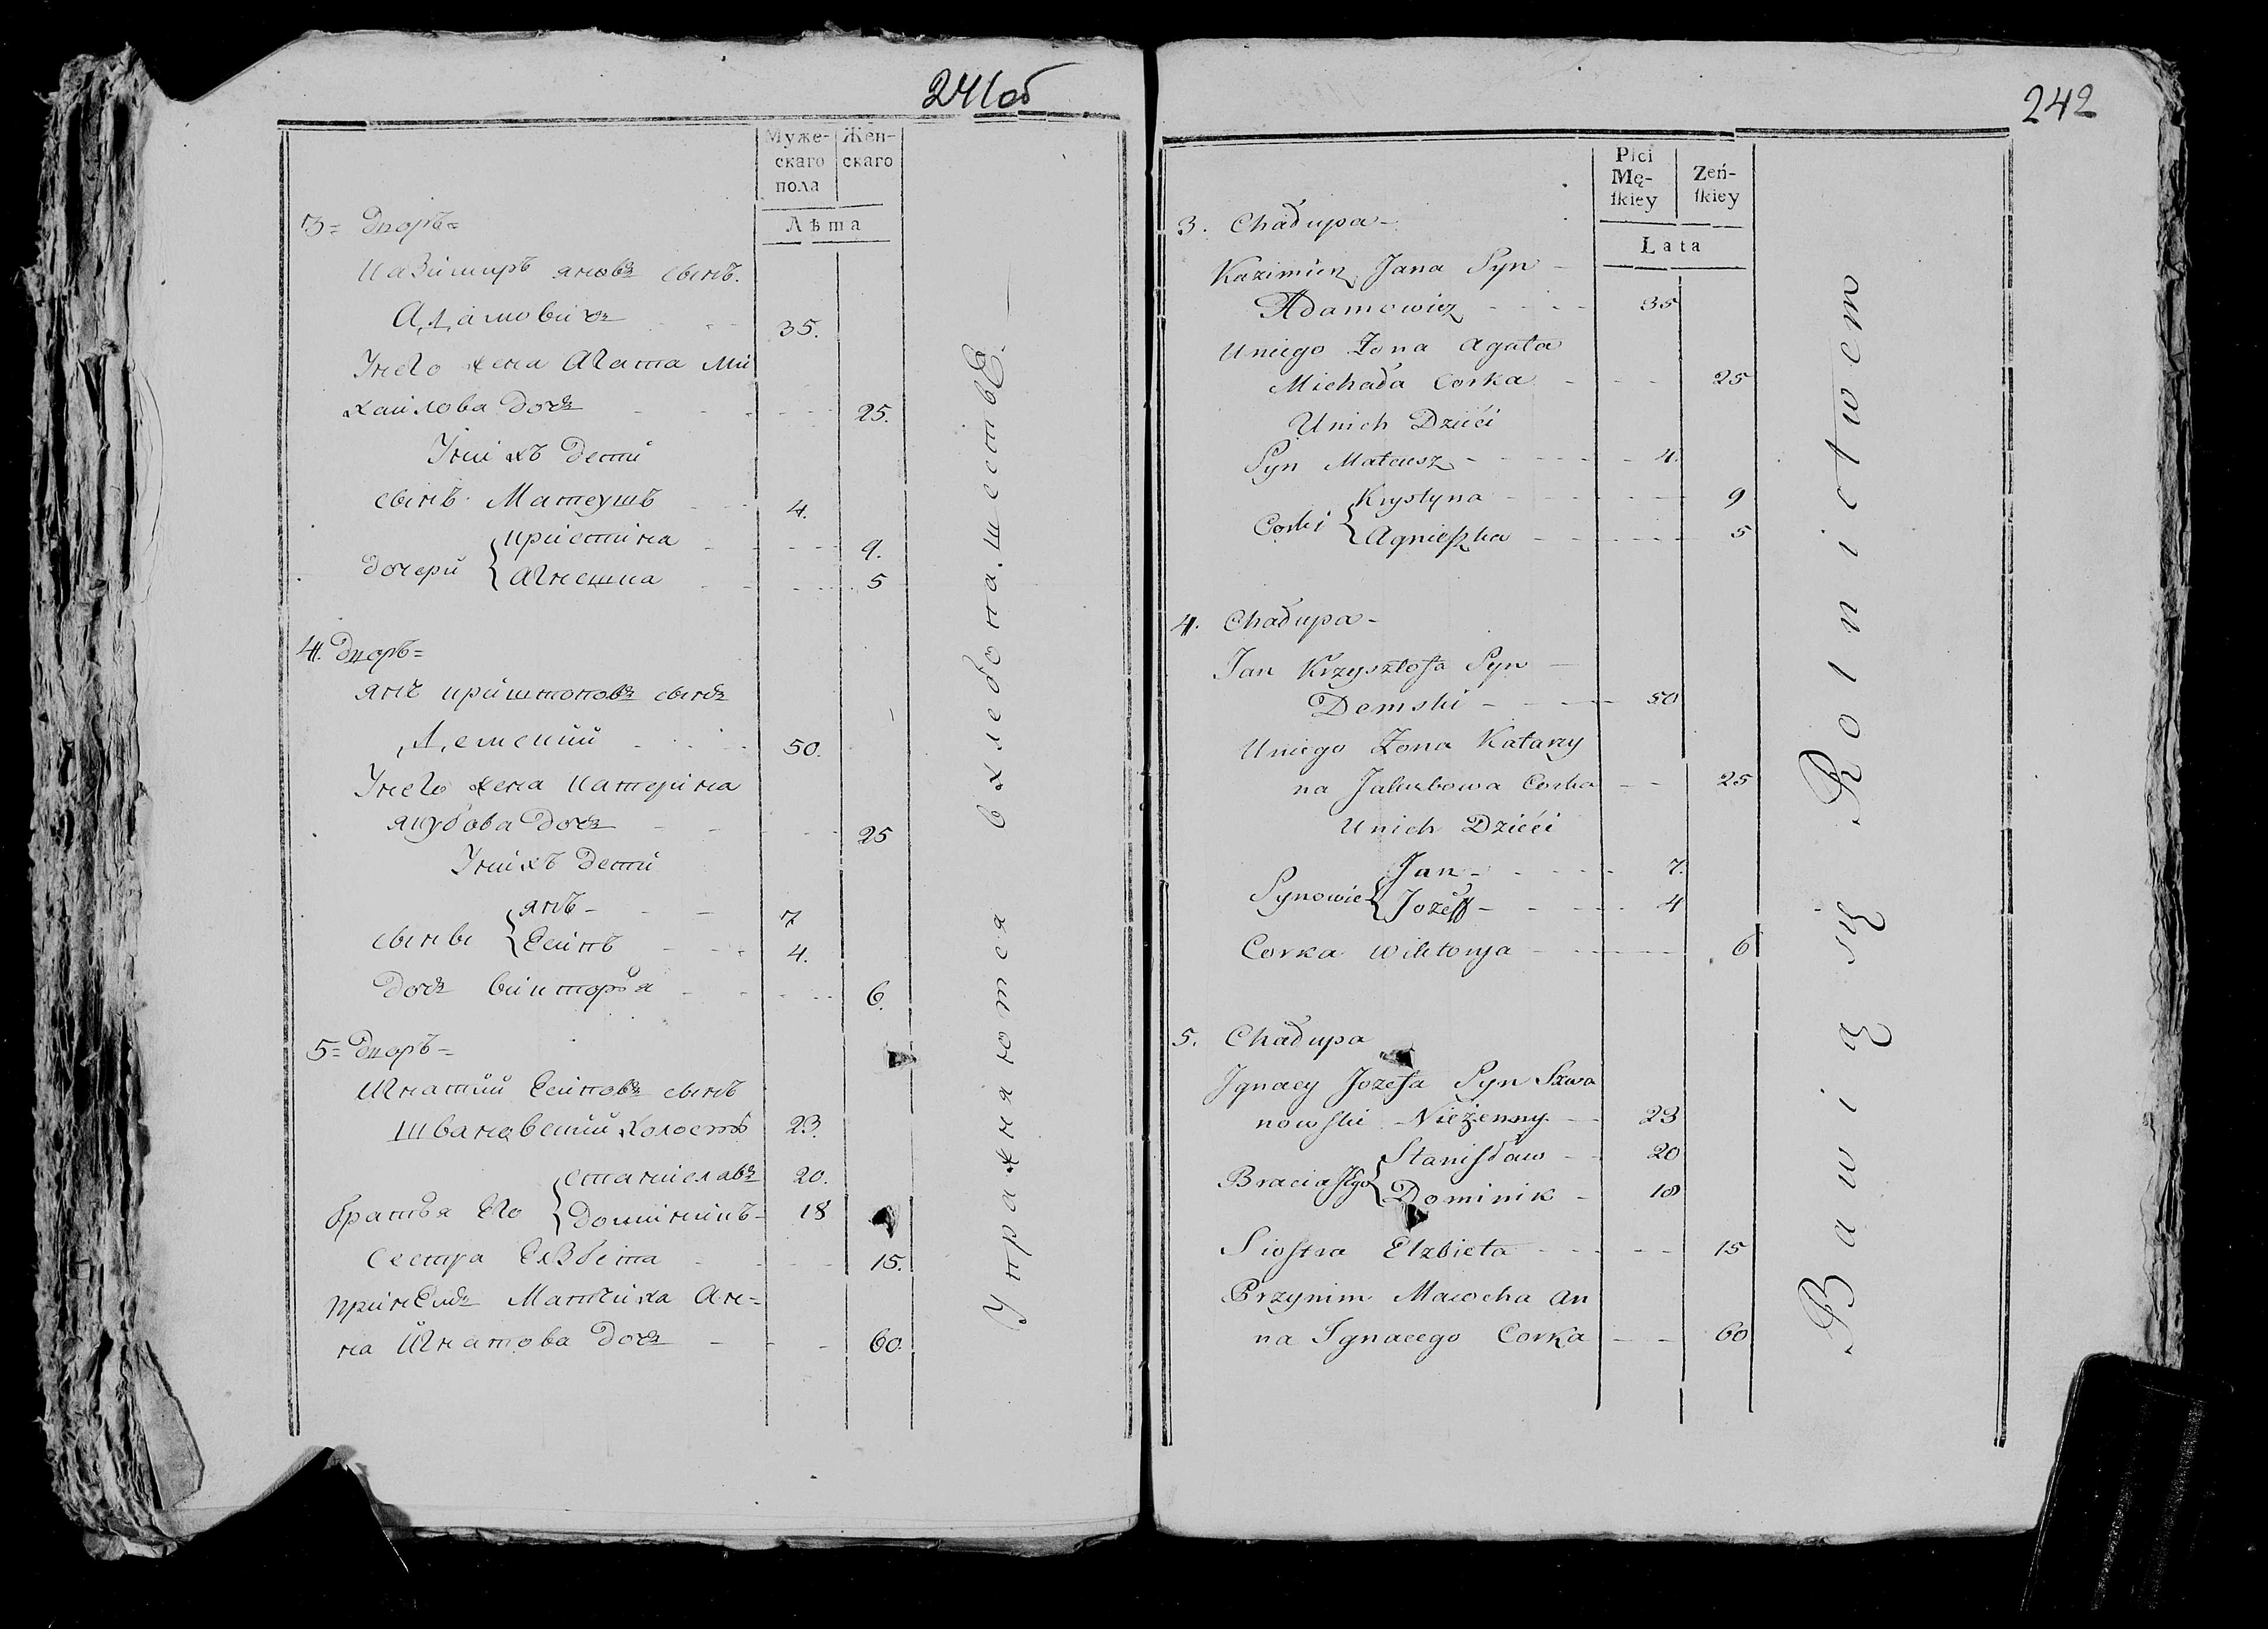 241об
Муже- Жен-
скаго скаго
пола
Лѣта
3= Дворъ=
Казимиръ яновъ сынъ.
Адамовичъ 35.
Унего жена Агата Ми
хайлова дочь 25.
Унихъ дети
сынъ Матеушъ 4.
дочери { Кристина 9.
Агнешка 5
4. Дворъ=
янъ Криштоповъ сынъ
Демский 50.
Унего жена Катерина
якубова дочь 25
Унихъ дети
сынове { янъ 7
Есипъ 4.
дочь викторыя 6.
5= Дворъ=
Игнатий Есиповъ сынъ
Швановский холостъ 23.
братья его { станиславъ 20.
доминикъ 18
сестра Елзбета 15.
принемъ Мачиха Ан=
на Игнатова дочь 60.
Упражняются в хлебопашестве.
242
Płci Zeń-
Mę- ſkiey
ſkiey
Lata
3. Chałupa-
Kazimierz Jana Syn
Adamowicz 35
Uniego Żona Agata
Michała Corka 25
Unich Dzieći
Syn Mateusz 4.
Corki { Krystyna 9
Agnieszka 5
4. Chałupa-
Jan Krzysztofa Syn
Demski 50
Uniego Żona Katarzy
na Jakubowa Corka 25
Unich Dzieći
Synowie { Jan 7.
Jozeff 4
Corka Wiktorya 6
5. Chałupa
Jgnacy Jozefa Syn Szwa
nowſki Nieżenny 23
Bracia Jego { Staniſław 20
Dominik 18
Sioſtra Elzbieta 15
Przynim Macocha An
na Jgnacego Corka 60
Bawią się Rolnictwem